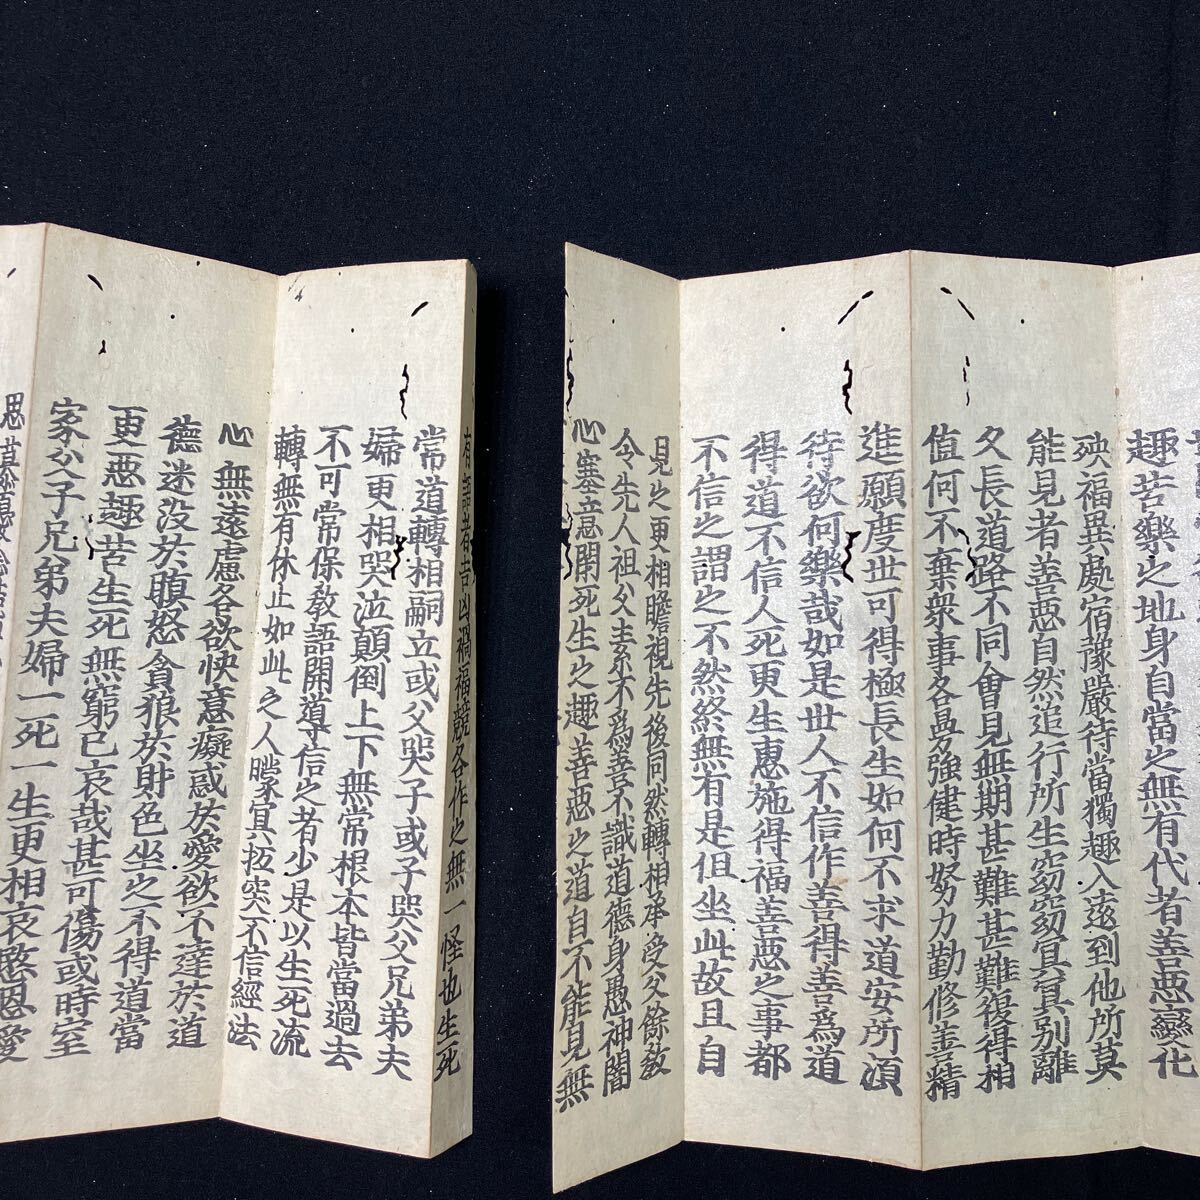 趣苦樂之地身自當之無有代者善惡變化
殃福異處宿豫嚴待當獨趣入遠到他所莫
能見者善惡自然追行所生窈窈冥冥別離
久長道路不同會見無期甚難甚難復得相
值何不棄衆事各曼強健時努力勤修善精
進願度世可得極長生如何不求道安所須
待欲何樂哉如是世人不信作善得善爲道
得道不信人死更生惠施得福善惡之事都
不信之謂之不然終無有是但坐此故且自
見之更相瞻視先後同然轉相承受父餘敎
令先人祖父素不爲善不識道德身愚神闇
心塞意閉死生之趣善惡之道自不能見無
有語者吉凶禍福競各作之無一怪也生死
常道轉相嗣立或父哭子或子哭父兄弟夫
婦更相哭泣顛倒上下無常根本皆當過去
不可常保敎語開導信之者少是以生死流
轉無有休止如此之人矇冥抵突不信經法
心無遠慮各欲快意癡惑於愛欲不達於道
德迷没於瞋怒貪狼於財色坐之不得道當
更惡趣苦生死無窮已哀哉甚可傷或時室
家父子兄弟夫婦一死一生更相哀愍恩愛
思慕